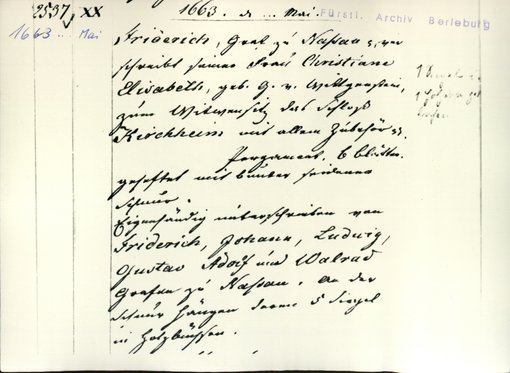 2537, XX
1663. d. ... Mai.
Fürstl. Archiv Berleburg
1663 ... Mai
Friderich, Graf zu Naßau, ver
schreibt seiner Frau Christiane
Elisabeth, geb. G. v. Wittgenstein,
zum Witwensitz das Schloß
Kirchheim mit allem Zubehör
Pergament, 6 Blätter.
geheftet mit seidener
Schnur.
Eigenhändig unterschrieben von
Friderich, Johann, Ludwig,
Gustav Adolf und Walrad
Grafen zu Naßau. An der
Schnur hängen deren 5 Siegel
in Holzbüchsen.